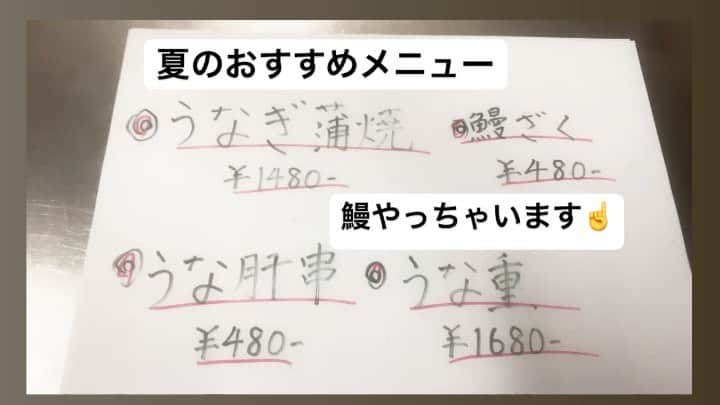 夏のおすすめメニュー
◎うなぎ蒲焼
¥1480-
◎鰻ざく
¥480-
鰻やっちゃいます☝️
◎うな肝串
¥480-
◎うな重
¥1680-